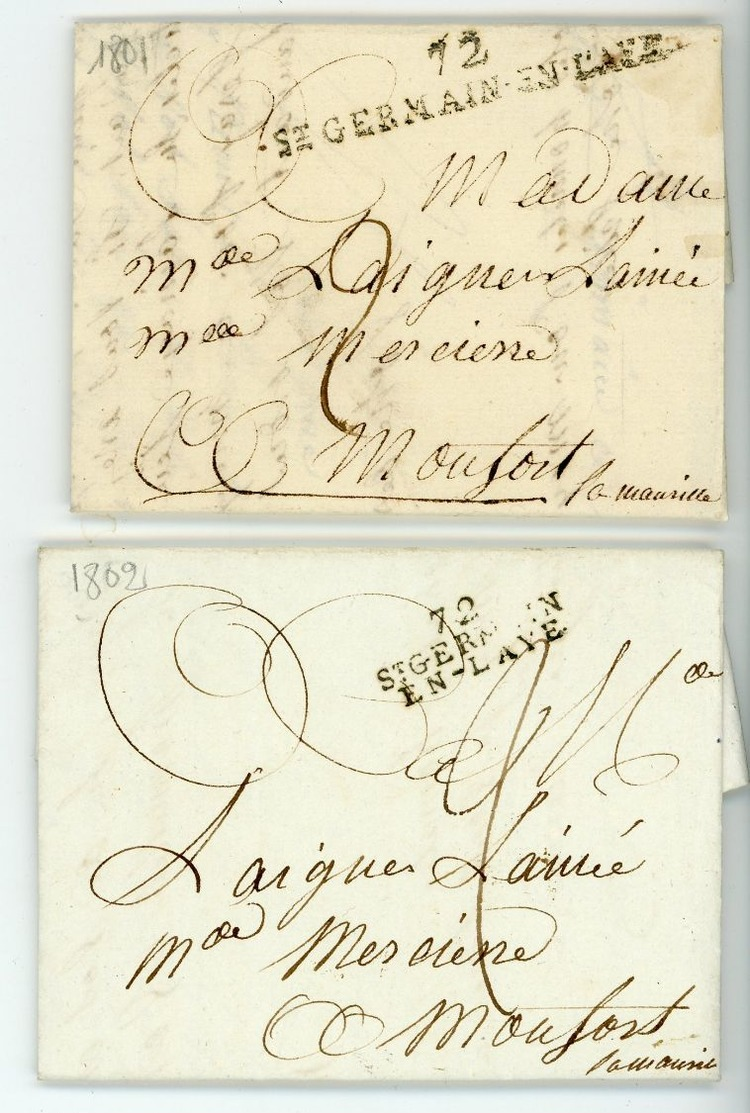 1801
72
ST GERMAIN-EN-LAYE
Madame
Mde Laigner Lainée
Mde Mercierre
A Monfort
Lamaurille
1802
72
ST GERMAIN
EN-LAYE
A Mde
Laigner Lainié
Mde Mercierre
A Monfort